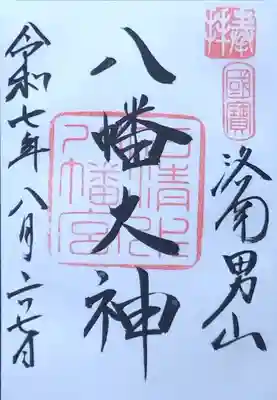 奉拝
國寶
洛南男山
八幡大神
石清水
八幡宮
令和七年八月二十七日